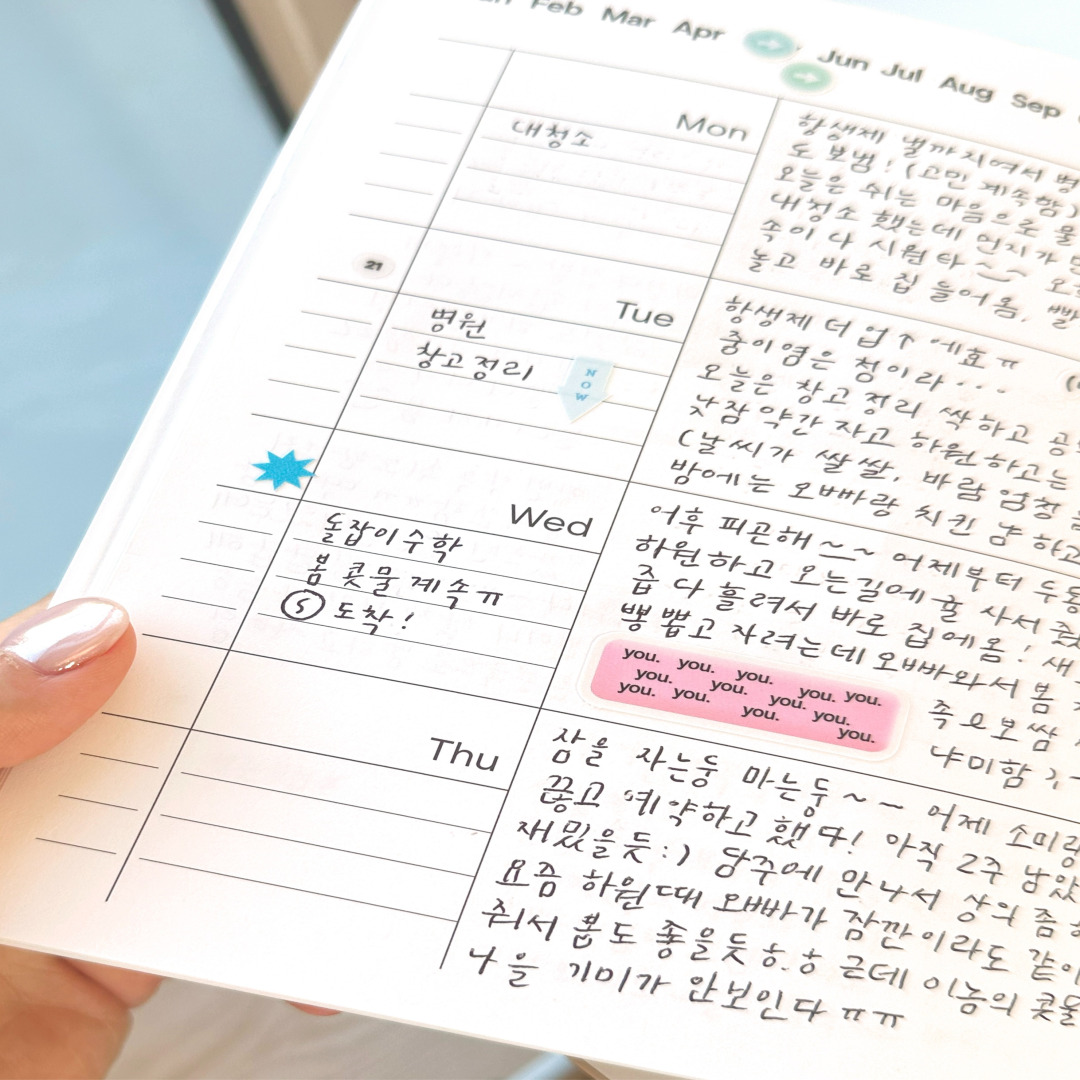 Feb Mar Apr Jun Jul Aug Sep
Mon
대청소
항생제 낼까지여서 병
도 보범! (고민 계속함)
오늘은 쉬는 마음으로 물
대청소 했는데 먼지가
속이 다 시원타~
놓고 바로 집 들어옴.
21
Tue
병원
창고정리
NOW
항생제 더 업↑ 에효ㅠ
중이염은 첨이라...
오늘은 창고정리 싹하고
낮잠 약간 자고 하원하고는
(날씨가 쌀쌀, 바람 엄청
밤에는 오빠랑 치킨 냠 하고
Wed
돌잡이수학
봄 콧물 계속ㅠ
⑤ 도착!
어후 피곤해~~ 어제부터 두통
하원하고 오는길에 귤 사서
즙 다 흘려서 바로 집에옴! 새
뽕뽑고 자려는데 오빠와서 봄
you. you. you. you. you.
you. you. you. you.
you. you. you.
you.
족으보쌈
냐미함
Thu
잠을 자는둥 마는둥~~ 어제 소미랑
끊고 예약하고 했다! 아직 2주 남았
재밌을듯:) 담주에 만나서 상의 좀
요즘 하원때 오빠가 잠깐이라도 같이
줘서 봄도 좋을듯 ㅎ.ㅎ 근데 이놈의 콧물
나을 기미가 안보인다 ㅠㅠ